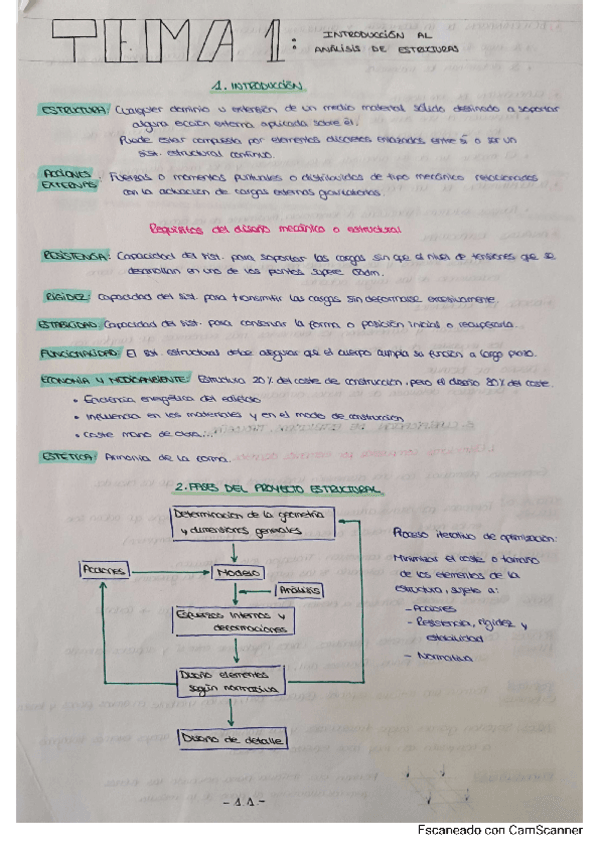 TEMA 1: INTRODUCCIÓN AL
ANÁLISIS DE ESTRUCTURAS
1. INTRODUCCIÓN
ESTRUCTURA: Cualquier dominio u extensión de un medio material sólido destinado a soportar
alguna acción externa aplicada sobre él.
Puede estar compuesto por elementos discretos enlazados entre sí o ser un
sist. estructural continuo.
ACCIONES
EXTERNAS: Fuerzas o momentos puntuales o distribuidos de tipo mecánico relacionados
con la actuación de cargas externas gravitatorias.
Requisitos del diseño mecánico o estructural
RESISTENCIA: Capacidad del sist. para soportar las cargas sin que el nivel de tensiones que se
desarrollan en uno de los puntos supere
RIGIDEZ: capacidad del sist. para transmitir las cargas sin deformarse excesivamente.
ESTABILIDAD: Capacidad del sist. para conservar la forma o posición inicial o recuperarla.
FUNCIONALIDAD: El sist. estructural debe asegurar que el cuerpo cumpla su función a largo plazo.
ECONOMÍA Y MEDIOAMBIENTE: Estructura 20% del coste de construcción, pero el diseño 80% del coste.
• Eficiencia energética del edificio
• Influencia en los materiales y en el modo de construcción
• Coste mano de obra...
ESTÉTICA: Armonía de la forma.
2. FASES DEL PROYECTO ESTRUCTURAL
Determinación de la geometría
y dimensiones generales
Acciones
Modelo
Análisis
Esfuerzos internos y
deformaciones
Diseño elementos
según normativa
Diseño de detalle
Proceso iterativo de optimización:
Minimizar el coste o tamaño
de los elementos de la
estructura, sujeto a:
- Acciones
- Resistencia, rigidez y
estabilidad
- Normativa
- 1.1 -
Escaneado con CamScanner